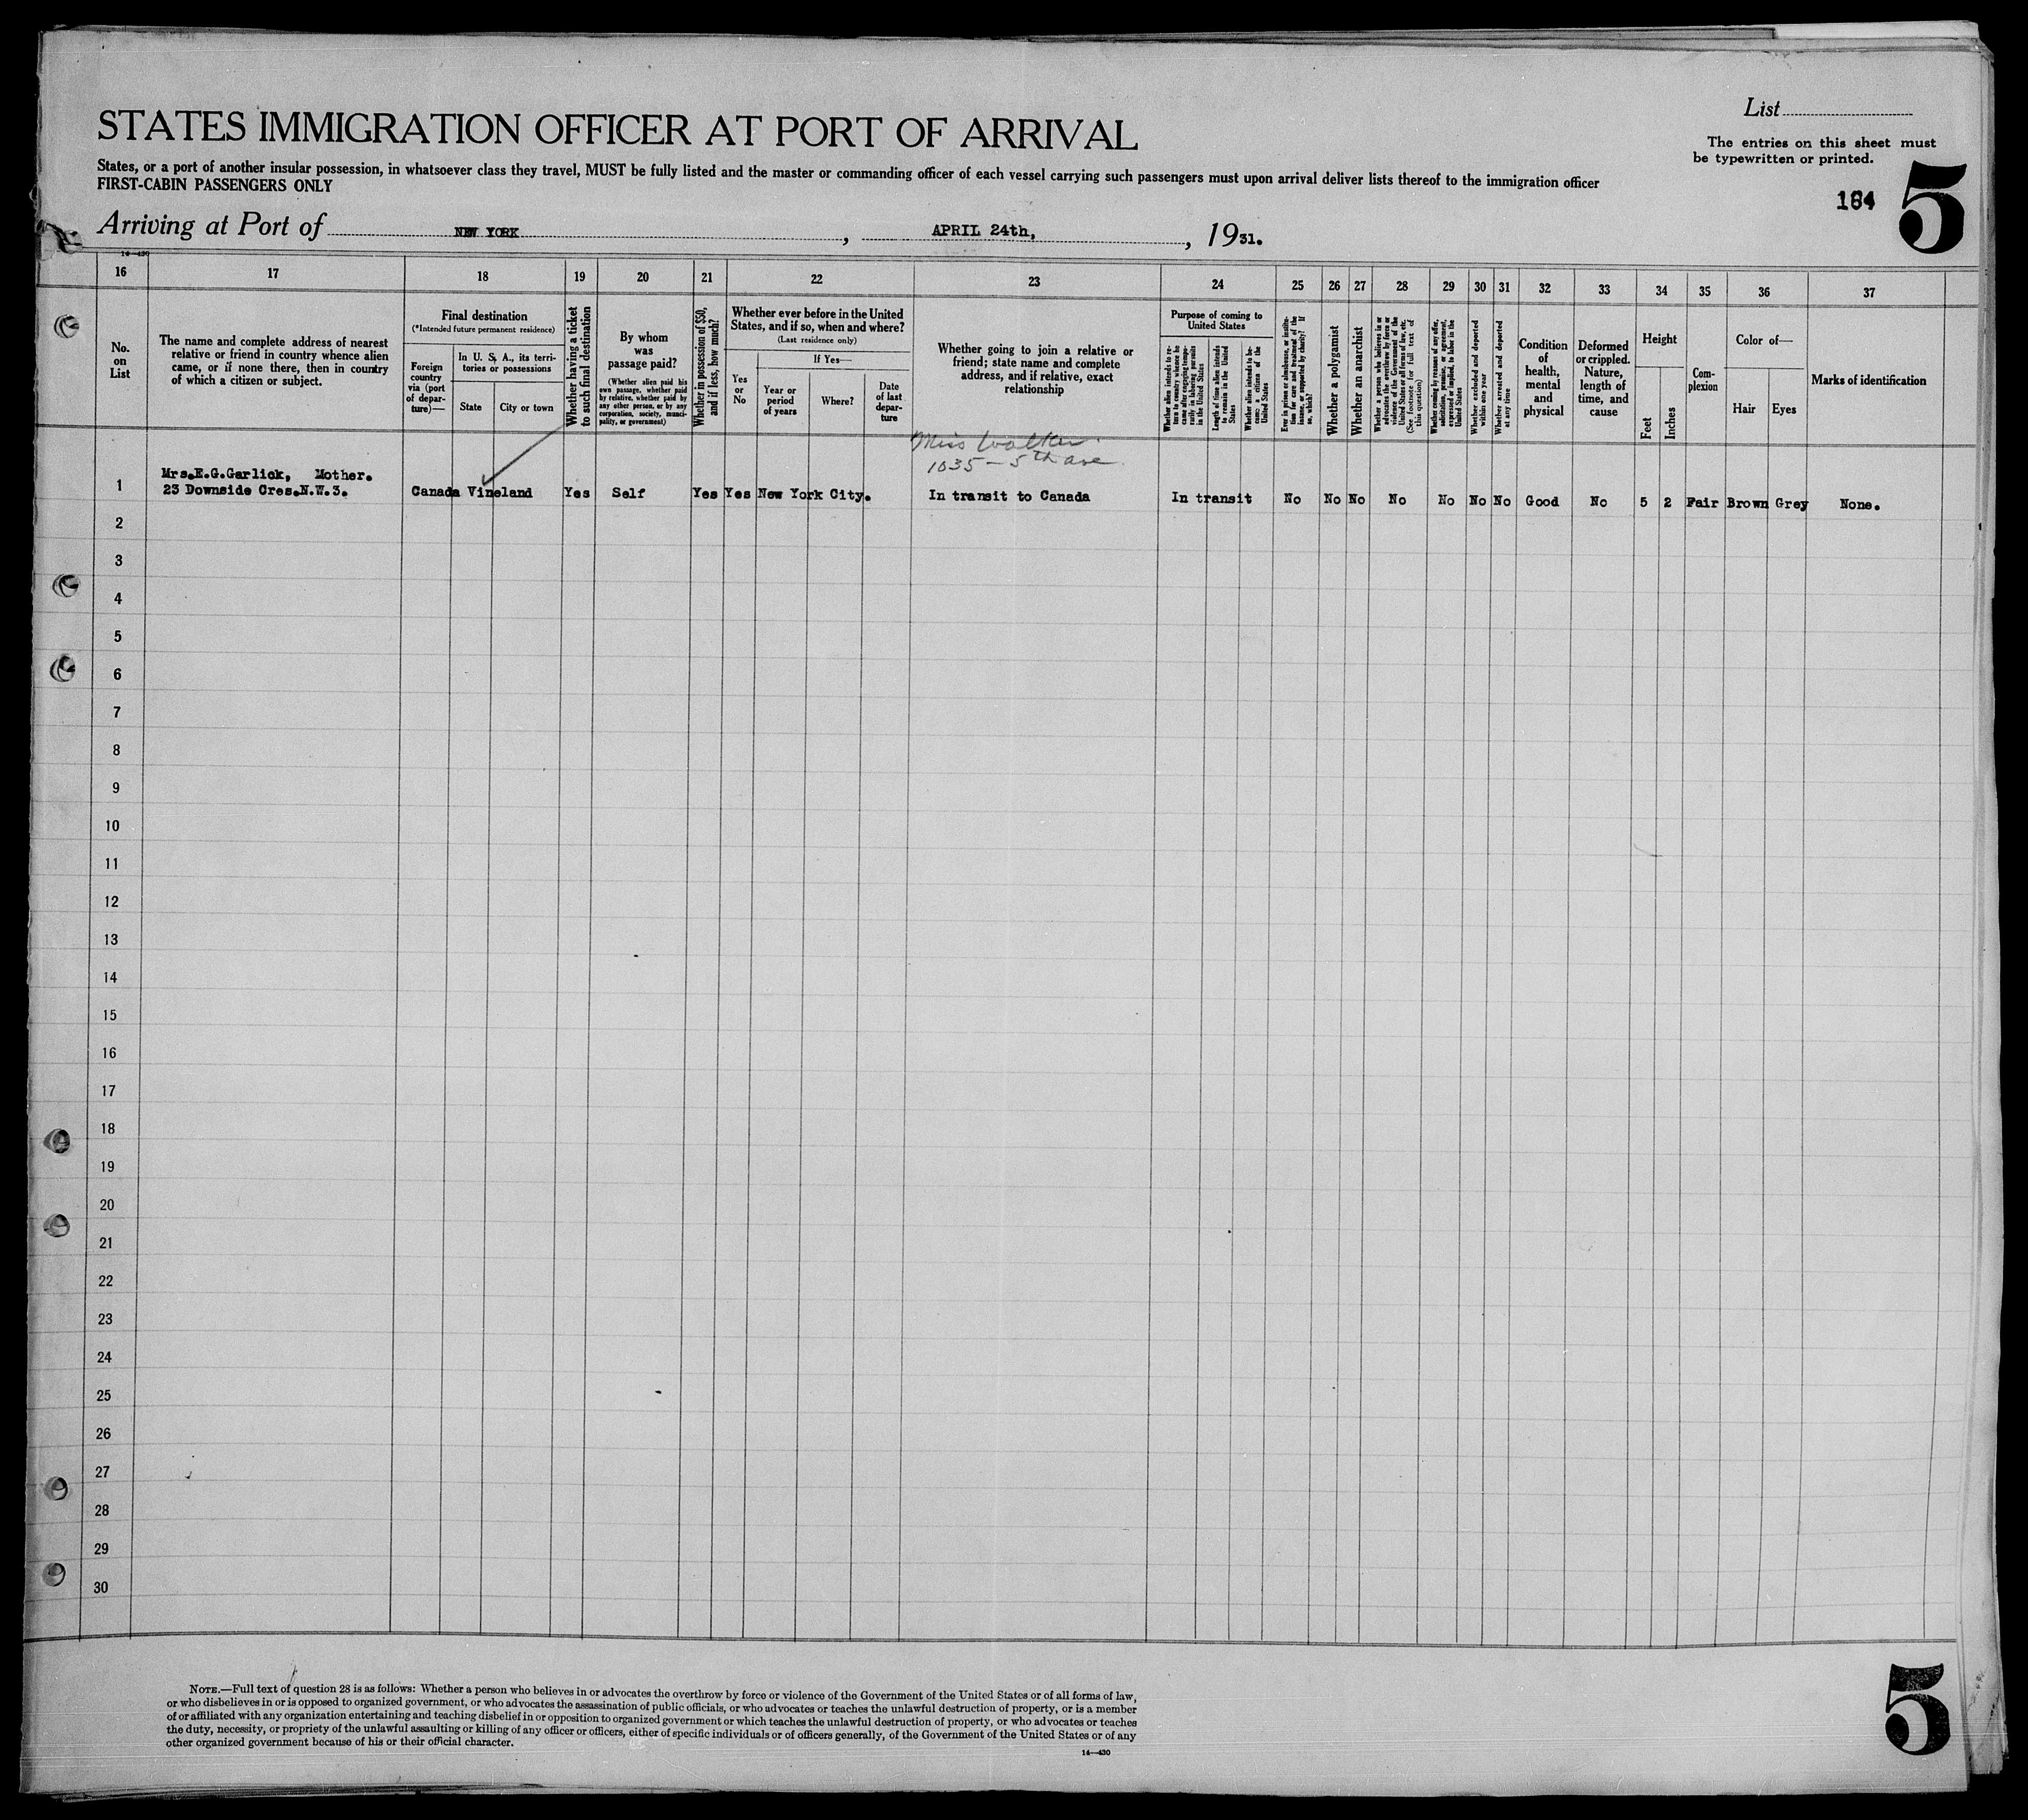 List
STATES IMMIGRATION OFFICER AT PORT OF ARRIVAL
The entries on this sheet must
be typewritten or printed.
States, or a port of another insular possession, in whatsoever class they travel, MUST be fully listed and the master or commanding officer of each vessel carrying such passengers must upon arrival deliver lists thereof to the immigration officer
FIRST-CABIN PASSENGERS ONLY
164
5
Arriving at Port of NEW YORK, APRIL 24th, , 1931.
14—430
16 17 18 19 20 21 22 23 24 25 26 27 28 29 30 31 32 33 34 35 36 37
No.
on
List
The name and complete address of nearest
relative or friend in country whence alien
came, or if none there, then in country
of which a citizen or subject.
Final destination
(*Intended future permanent residence)
Foreign
country
via (port
of depar-
ture)—
In U. S. A., its terri-
tories or possessions
State
City or town
Whether having a ticket
to such final destination
By whom
was
passage paid?
(Whether alien paid his
own passage, whether paid
by relative, whether paid by
any other person, or by any
corporation, society, munici-
pality, or government)
Whether in possession of $50,
and if less, how much?
Whether ever before in the United
States, and if so, when and where?
(Last residence only)
Yes
or
No
If Yes—
Year or
period
of years
Where?
Date
of last
depar-
ture
Whether going to join a relative or
friend; state name and complete
address, and if relative, exact
relationship
Purpose of coming to
United States
Whether alien intends to re-
turn to country whence he
came after engaging tempo-
rarily in laboring pursuits
in the United States
Length of time alien intends
to remain in the United
States
Whether alien intends to be-
come a citizen of the
United States
Ever in prison or almshouse, or institu-
tion for care and treatment of the
insane, or supported by charity? If
so, which?
Whether a polygamist
Whether an anarchist
Whether a person who believes in or
advocates the overthrow by force or
violence of the Government of the
United States or all forms of law, etc.
(See footnote for full text of
this question)
Whether coming by reason of any offer,
solicitation, promise, or agreement,
expressed or implied, to labor in the
United States
Whether excluded and deported
within one year
Whether arrested and deported
at any time
Condition
of
health,
mental
and
physical
Deformed
or crippled.
Nature,
length of
time, and
cause
Height
Feet
Inches
Com-
plexion
Color of—
Hair
Eyes
Marks of identification
Miss Walker.
1035 - 5th ave.
Mrs.E.G.Garlick, Mother.
1 23 Downside Cres.N.W.3. Canada Vineland Yes Self Yes Yes New York City. In transit to Canada In transit No No No No No No No Good No 5 2 Fair Brown Grey None.
2
3
4
5
6
7
8
9
10
11
12
13
14
15
16
17
18
19
20
21
22
23
24
25
26
27
28
29
30
NOTE.—Full text of question 28 is as follows: Whether a person who believes in or advocates the overthrow by force or violence of the Government of the United States or of all forms of law,
or who disbelieves in or is opposed to organized government, or who advocates the assassination of public officials, or who advocates or teaches the unlawful destruction of property, or is a member
of or affiliated with any organization entertaining and teaching disbelief in or opposition to organized government or which teaches the unlawful destruction of property, or who advocates or teaches
the duty, necessity, or propriety of the unlawful assaulting or killing of any officer or officers, either of specific individuals or of officers generally, of the Government of the United States or of any
other organized government because of his or their official character.
14—430
5